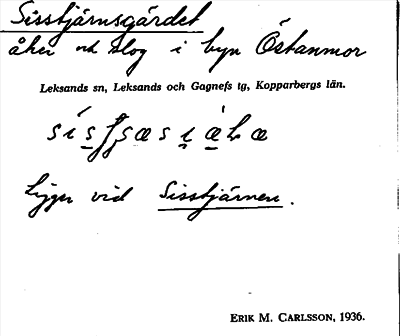 Sisstjärnsgärdet
åker och slog i byn Östanmor
Leksands sn, Leksands och Gagnefs tg, Kopparbergs län.
Ligger vid Sisstjärnen.
ERIK M. CARLSSON, 1936.